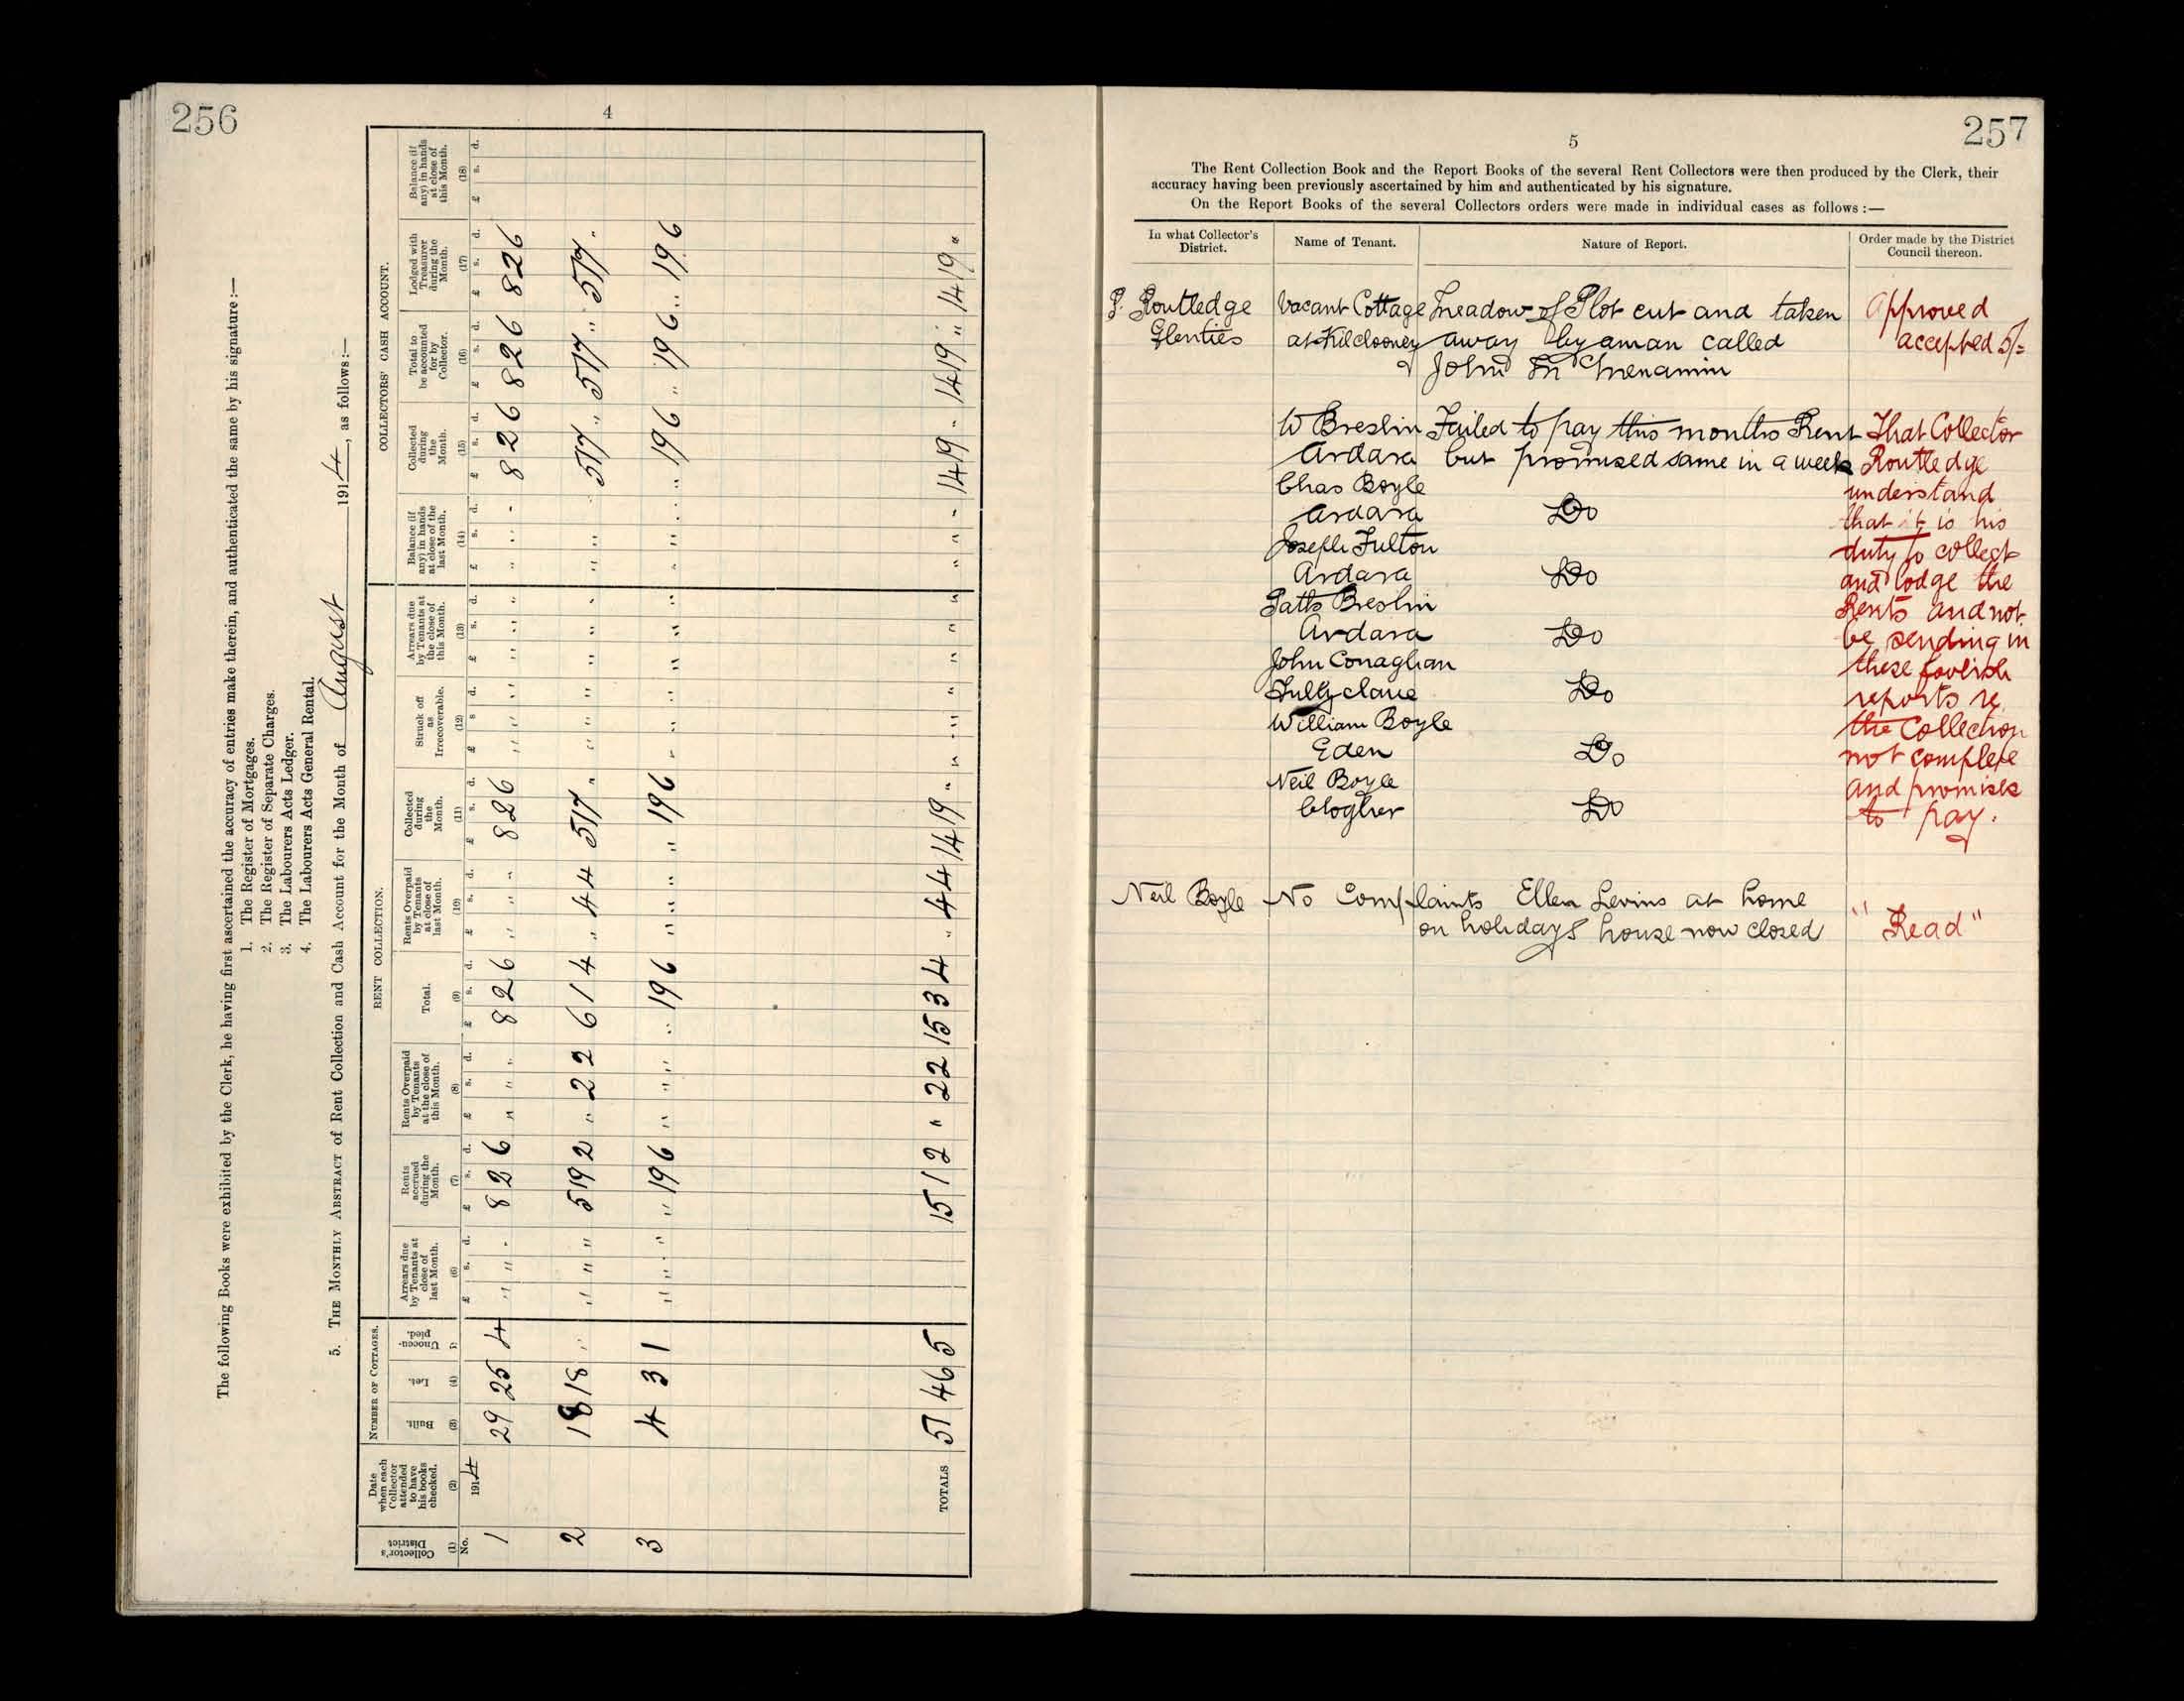 256
4
The following Books were exhibited by the Clerk, he having first ascertained the accuracy of entries make therein, and authenticated the same by his signature :—
1. The Register of Mortgages.
2. The Register of Separate Charges.
3. The Labourers Acts Ledger.
4. The Labourers Acts General Rental.
5. THE MONTHLY ABSTRACT of Rent Collection and Cash Account for the Month of August 1914, as follows:—
NUMBER OF COTTAGES. RENT COLLECTION. COLLECTORS' CASH ACCOUNT.
Collector's District (1) No.
Date when each Collector attended to have his books checked. (2) 1914
Built. (3)
Let. (4)
Unoccupied.
Arrears due by Tenants at close of last Month. (6) £ s. d.
Rents accrued during the Month. (7) £ s. d.
Rents Overpaid by Tenants at the close of this Month. (8) £ s. d.
Total. (9) £ s. d.
Rents Overpaid by Tenants at close of last Month. (10) £ s. d.
Collected during the Month. (11) £ s. d.
Struck off as Irrecoverable. (12) £ s d.
Arrears due by Tenants at the close of this Month. (13) £ s. d.
Balance (if any) in hands at close of the last Month. (14) £ s. d.
Collected during the Month. (15) £ s. d.
Total to be accounted for by Collector. (16) £ s. d.
Lodged with Treasurer during the Month. (17) £ s. d.
Balance (if any) in hands at close of this Month. (18) £ s. d.
1 29 25 4 " " " 8 2 6 " " " 8 2 6 " " " 8 2 6 " " " " " " " " " 8 2 6 8 2 6 8 2 6
2 18 18 " " " " 5 19 2 " 2 2 6 1 4 " 4 4 5 17 " " " " " " " " " " 5 17 " 5 17 " 5 17 "
3 4 3 1 " " " " 19 6 " " " " 19 6 " " " " 19 6 " " " " " " " " " " 19 6 " 19 6 " 19 6
TOTALS 51 46 5 15 1 2 " 2 2 15 3 4 " 4 4 14 19 " " " " " " " " " " 14 19 " 14 19 " 14 19 "
257
5
The Rent Collection Book and the Report Books of the several Rent Collectors were then produced by the Clerk, their
accuracy having been previously ascertained by him and authenticated by his signature.
On the Report Books of the several Collectors orders were made in individual cases as follows :—
In what Collector's District. Name of Tenant. Nature of Report. Order made by the District Council thereon.
P. Routledge Vacant Cottage Meadow of Plot cut and taken Approved
Glenties at Kilclooney away by a man called accepted 5/=
John McMenamin
W Breslin Failed to pay this months Rent That Collector
Ardara but promised same in a week Routledge
Chas Boyle understand
Ardara Do that it is his
Joseph Fulton duty to collect
Ardara Do and lodge the
Patk Breslin Rents and not
Ardara Do be sending in
John Conaghan these foolish
Tullyclave Do reports re
William Boyle the Collection
Eden Do not complete
Neil Boyle and promises
Clogher Do to pay.
Neil Boyle No Complaints Ellen Levins at home
on holidays house now closed "Read"